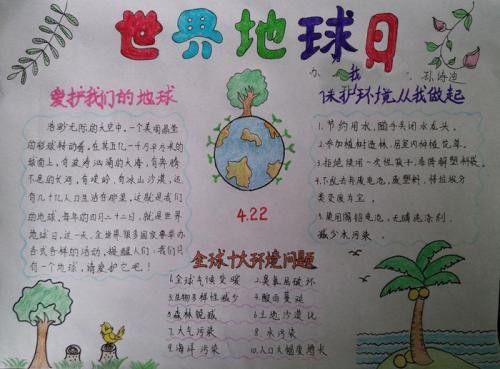 世界地球日
爱护我们的地球
浩渺无际的太空中，一个美丽晶莹
的彩球转动着，在其五亿一千万平方千米的
球面上，有波涛汹涌的大海，有奔腾
不息的长河，有峻岭，有冰山沙漠，还
有几十亿人口生活在那里，这就是我们
的地球，每年的四月二十二日，就是世界
地球日，这一天，全世界很多国家要举办
各式各样的活动，提醒人们：我们只
有一个地球，请爱护它吧！
4.22
保护环境从我做起
1.节约用水，随手关闭水龙头。
2.参加植树造林，居室内种植花草。
3.拒绝使用一次性筷子、泡沫塑料袋。
4.不乱丢弃废电池，废塑料，将垃圾分
类变废为宝。
5.使用节能电池，无磷洗涤剂，
减少水污染。
全球十大环境问题
1.全球气候变暖
2.臭氧层破坏
3.生物多样性减少
4.酸雨蔓延
5.森林锐减
6.土地沙漠化
7.大气污染
8.水污染
9.海洋污染
10.人口大幅度增长